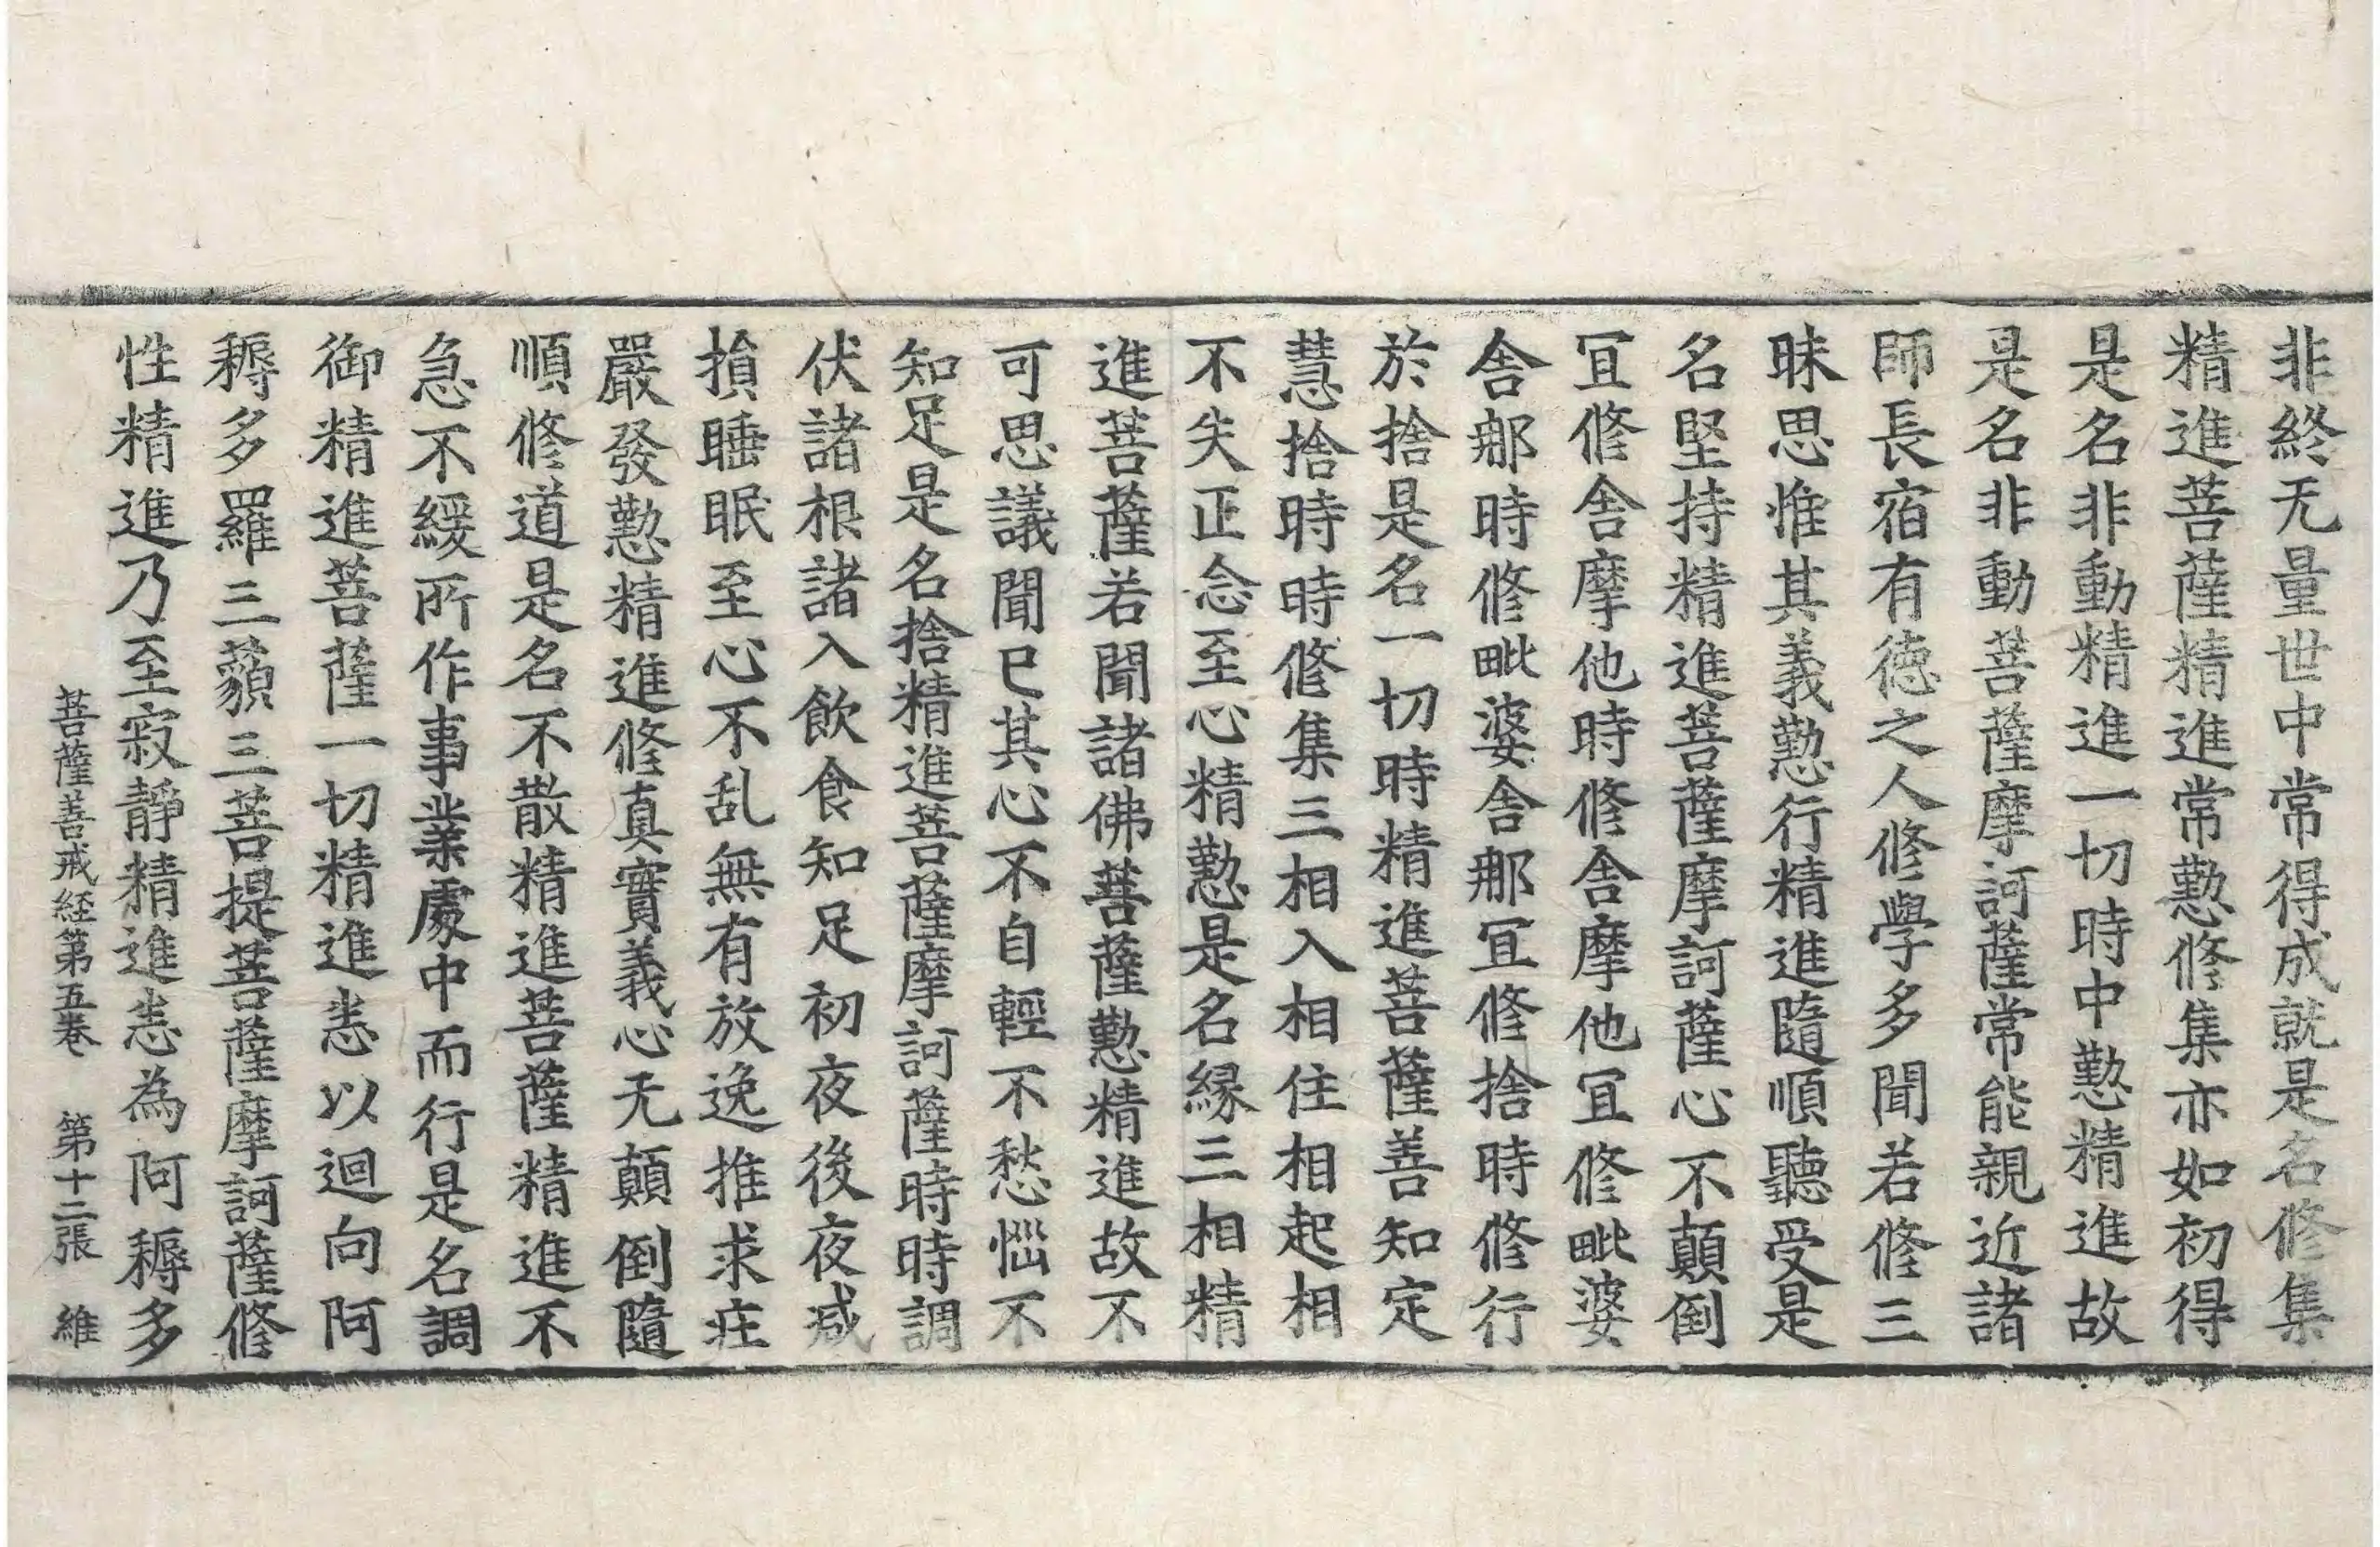 非終无量世中常得成就是名修集
精進菩薩精進常懃修集亦如初得
是名非動精進一切時中懃精進故
是名非動菩薩摩訶薩常能親近諸
師長宿有徳之人修學多聞若修三
昧思惟其義懃行精進隨順聽受是
名堅持精進菩薩摩訶薩心不顛倒
冝修舍摩他時修舍摩他冝修毗婆
舍那時修毗婆舍那冝修捨時修行
於捨是名一切時精進菩薩善知定
慧捨時時修集三相入相住相起相
不失正念至心精懃是名縁三相精
進菩薩若聞諸佛菩薩懃精進故不
可思議聞已其心不自輕不愁惱不
知足是名捨精進菩薩摩訶薩時時調
伏諸根諸入飲食知足初夜後夜减
損睡眠至心不乱無有放逸推求庄
嚴發懃精進修真實義心无顛倒隨
順修道是名不散精進菩薩精進不
急不緩所作事業處中而行是名調
御精進菩薩一切精進悉以迴向阿
耨多羅三藐三菩提菩薩摩訶薩修
性精進乃至寂靜精進悉為阿耨多
菩薩善戒経第五卷 第十二張 維